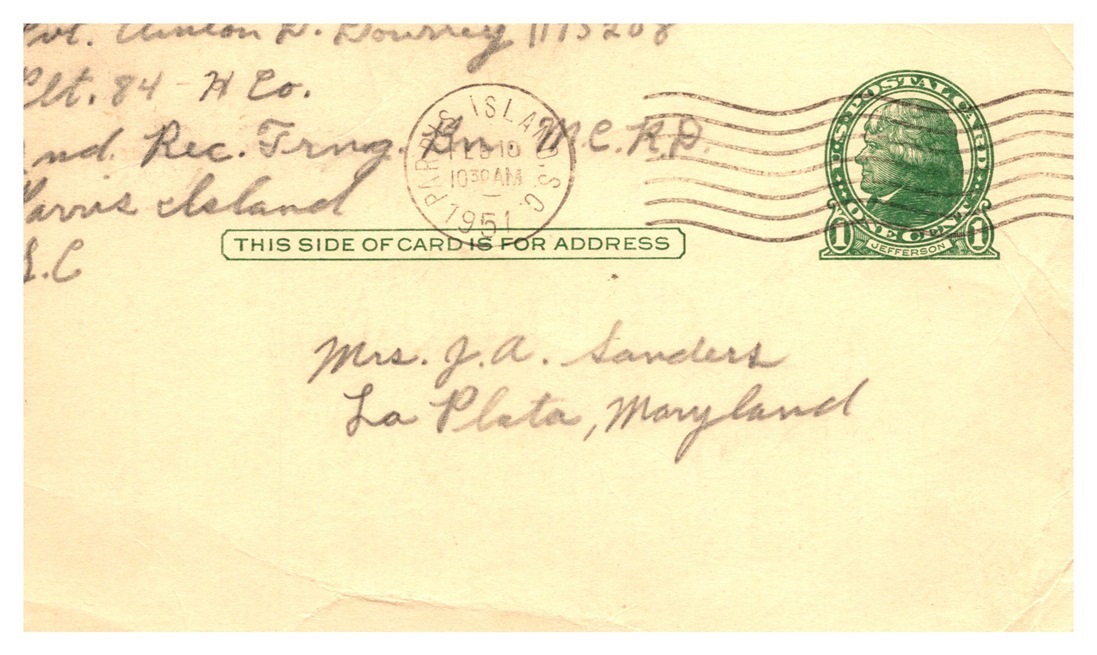 Pvt. D. 1175208
Plt. 84 - H Co.
nd Rec. Trng. Bn. M.C.R.D.
Parris Island
S.C
PARRIS ISLAND S.C.
FEB 16
10 30 AM
1951
U.S. POSTAL CARD
ONE CENT
1 JEFFERSON 1
THIS SIDE OF CARD IS FOR ADDRESS
Mrs. J. A. Sanders
La Plata, Maryland